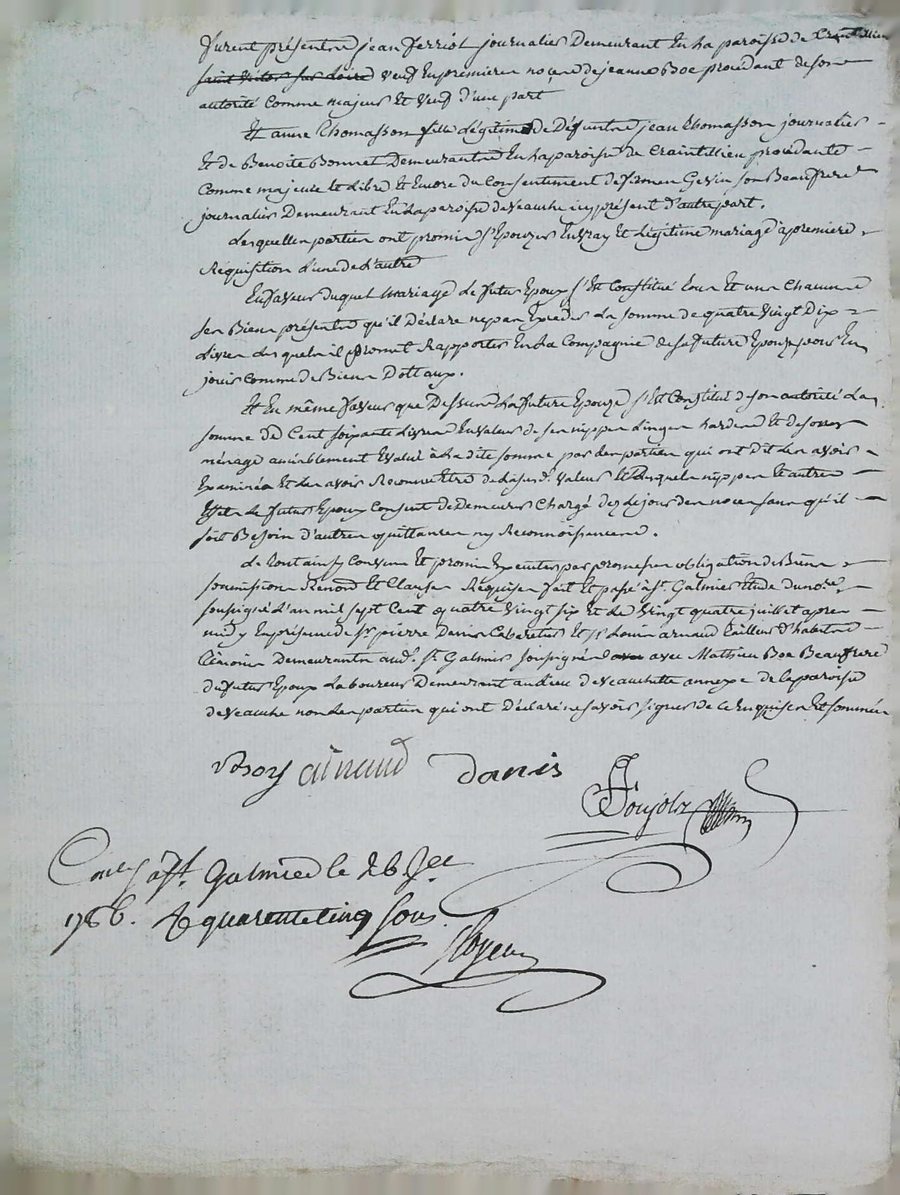 furent présents jean ferriol journalier Demeurant En la paroisse de Craintillieu
saint victor sur Loire veuf En premieres noces de jeanne Boe procédant de son
autorité comme majeur Et veuf d'une part
Et anne thomasson fille Légitime de Défunts jean thomasson journalier
Et de Benoite Bonnet Demeurante En la paroisse de Craintillieu procédante
Comme majeure Et Libre Et Encore du Consentement de simon Gevin son Beaufrere
journalier Demeurant En la paroisse de veauche icy présent d'autre part.
Lesquelles parties ont promis s'Epouzer En vray Et Légitime mariage à premiere
Réquisition L'une de L'autre
En faveur duquel Mariage Le futur Epoux s'Est Constitué tous Et uns Chacuns
ses Biens présents qu'il Déclare ne pas Exceder La somme de quatre Vingt Dix
Livres Lesquels il promet Rapporter En La Compagnie de sa future Epouze pour En
jouir Comme de Biens Dottaux.
Et En même faveur que Dessus La future Epouze s'Est Constitué de son autorité La
somme de Cent soixante Livres En valeur de ses nippes Linges hardes Et de son
ménage amiablement Evalué à La dite somme par Les parties qui ont dit Les avoir
Examinés Et Les avoir Reconnu Etre de La susd. valeur Desquels nippes Et autres
Effets Le futur Epoux Consent de Demeurer Chargé dez Le jour des noces sans qu'il
soit Besoin d'autres quittances ny Reconnoissances.
de tout ainsy Convenu Et promis Executer par promesses obligation de Biens
soumissions Renond. Et Clauses Requises fait Et passé à St. Galmier Etude du nore.
soussigné L'an mil sept Cent quatre Vingt six Et Le Vingt quatre juillet apres
midy En présence de Sr. pierre Danis Cabaretier Et Sr. Louis arnaud tailleur d'habits
témoins Demeurants aud. St. Galmier soussignés avec Mathieu Boe Beaufrere
du futur Epoux Laboureur Demeurant au Lieu de veauchette annexe de la paroisse
de veauche non Les parties qui ont Déclaré ne savoir signer de ce Enquises Et sommées
arnaud danis
Ponjolz
Conlé à St. Galmier le 26 Jet
1786. R quarente cinq sous